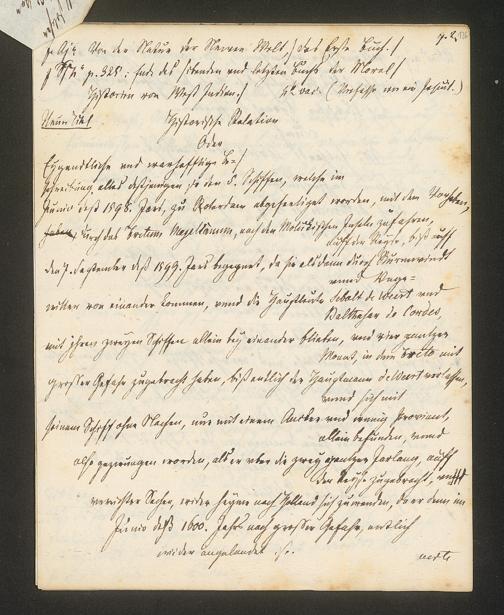 p. 2.
Von der Natur der Newen Welt,) das Erste Buch./
p. 325: Ende des siebenden vnd letzten Buchs der Moral/
Historien von West Indien./
Neuer Titel Historische Relation
Oder
Eygendtliche vnd warhafftige Be=/
schreibung, alles desjenigen, so den 5. Schiffen, welche im
Junio deß 1598. Jars, zu Roterdam abgefertiget worden, mit dem Vorhaben,
durch das Fretum Magellanum, nach den Moluckischen Inseln zufahren,
auff der Reyse, biß auff
den 7. September deß 1599. Jars begegnet, da sie als dann durch Sturmwindt
vnnd Vnge=
witter von einander kommen, vnnd die Hauptleute Sebalt de Weert vnd
Balthasar de Cordes,
mit jhren zweyen Schiffen allein bey einander blieben, vnd vier gantzer
Monat, in dem Freto mit
grosser Gefahr zugebracht haben, biß endlich der Hauptmann de Weert verlassen,
vnnd sich mit
seinem Schiff ohne Nachen, nur mit einem Ancker vnd wenig Proviant,
allein befunden, vnnd
also gezwungen worden, als er vber die zwey gantzer Jarlang, auff
der Reyse zugebracht,
verrichter Sachen, wider heym nach Holland sich zuwenden, da er denn im
Junio deß 1600. Jahrs nach grosser Gefahr, entlich
wider angelandet